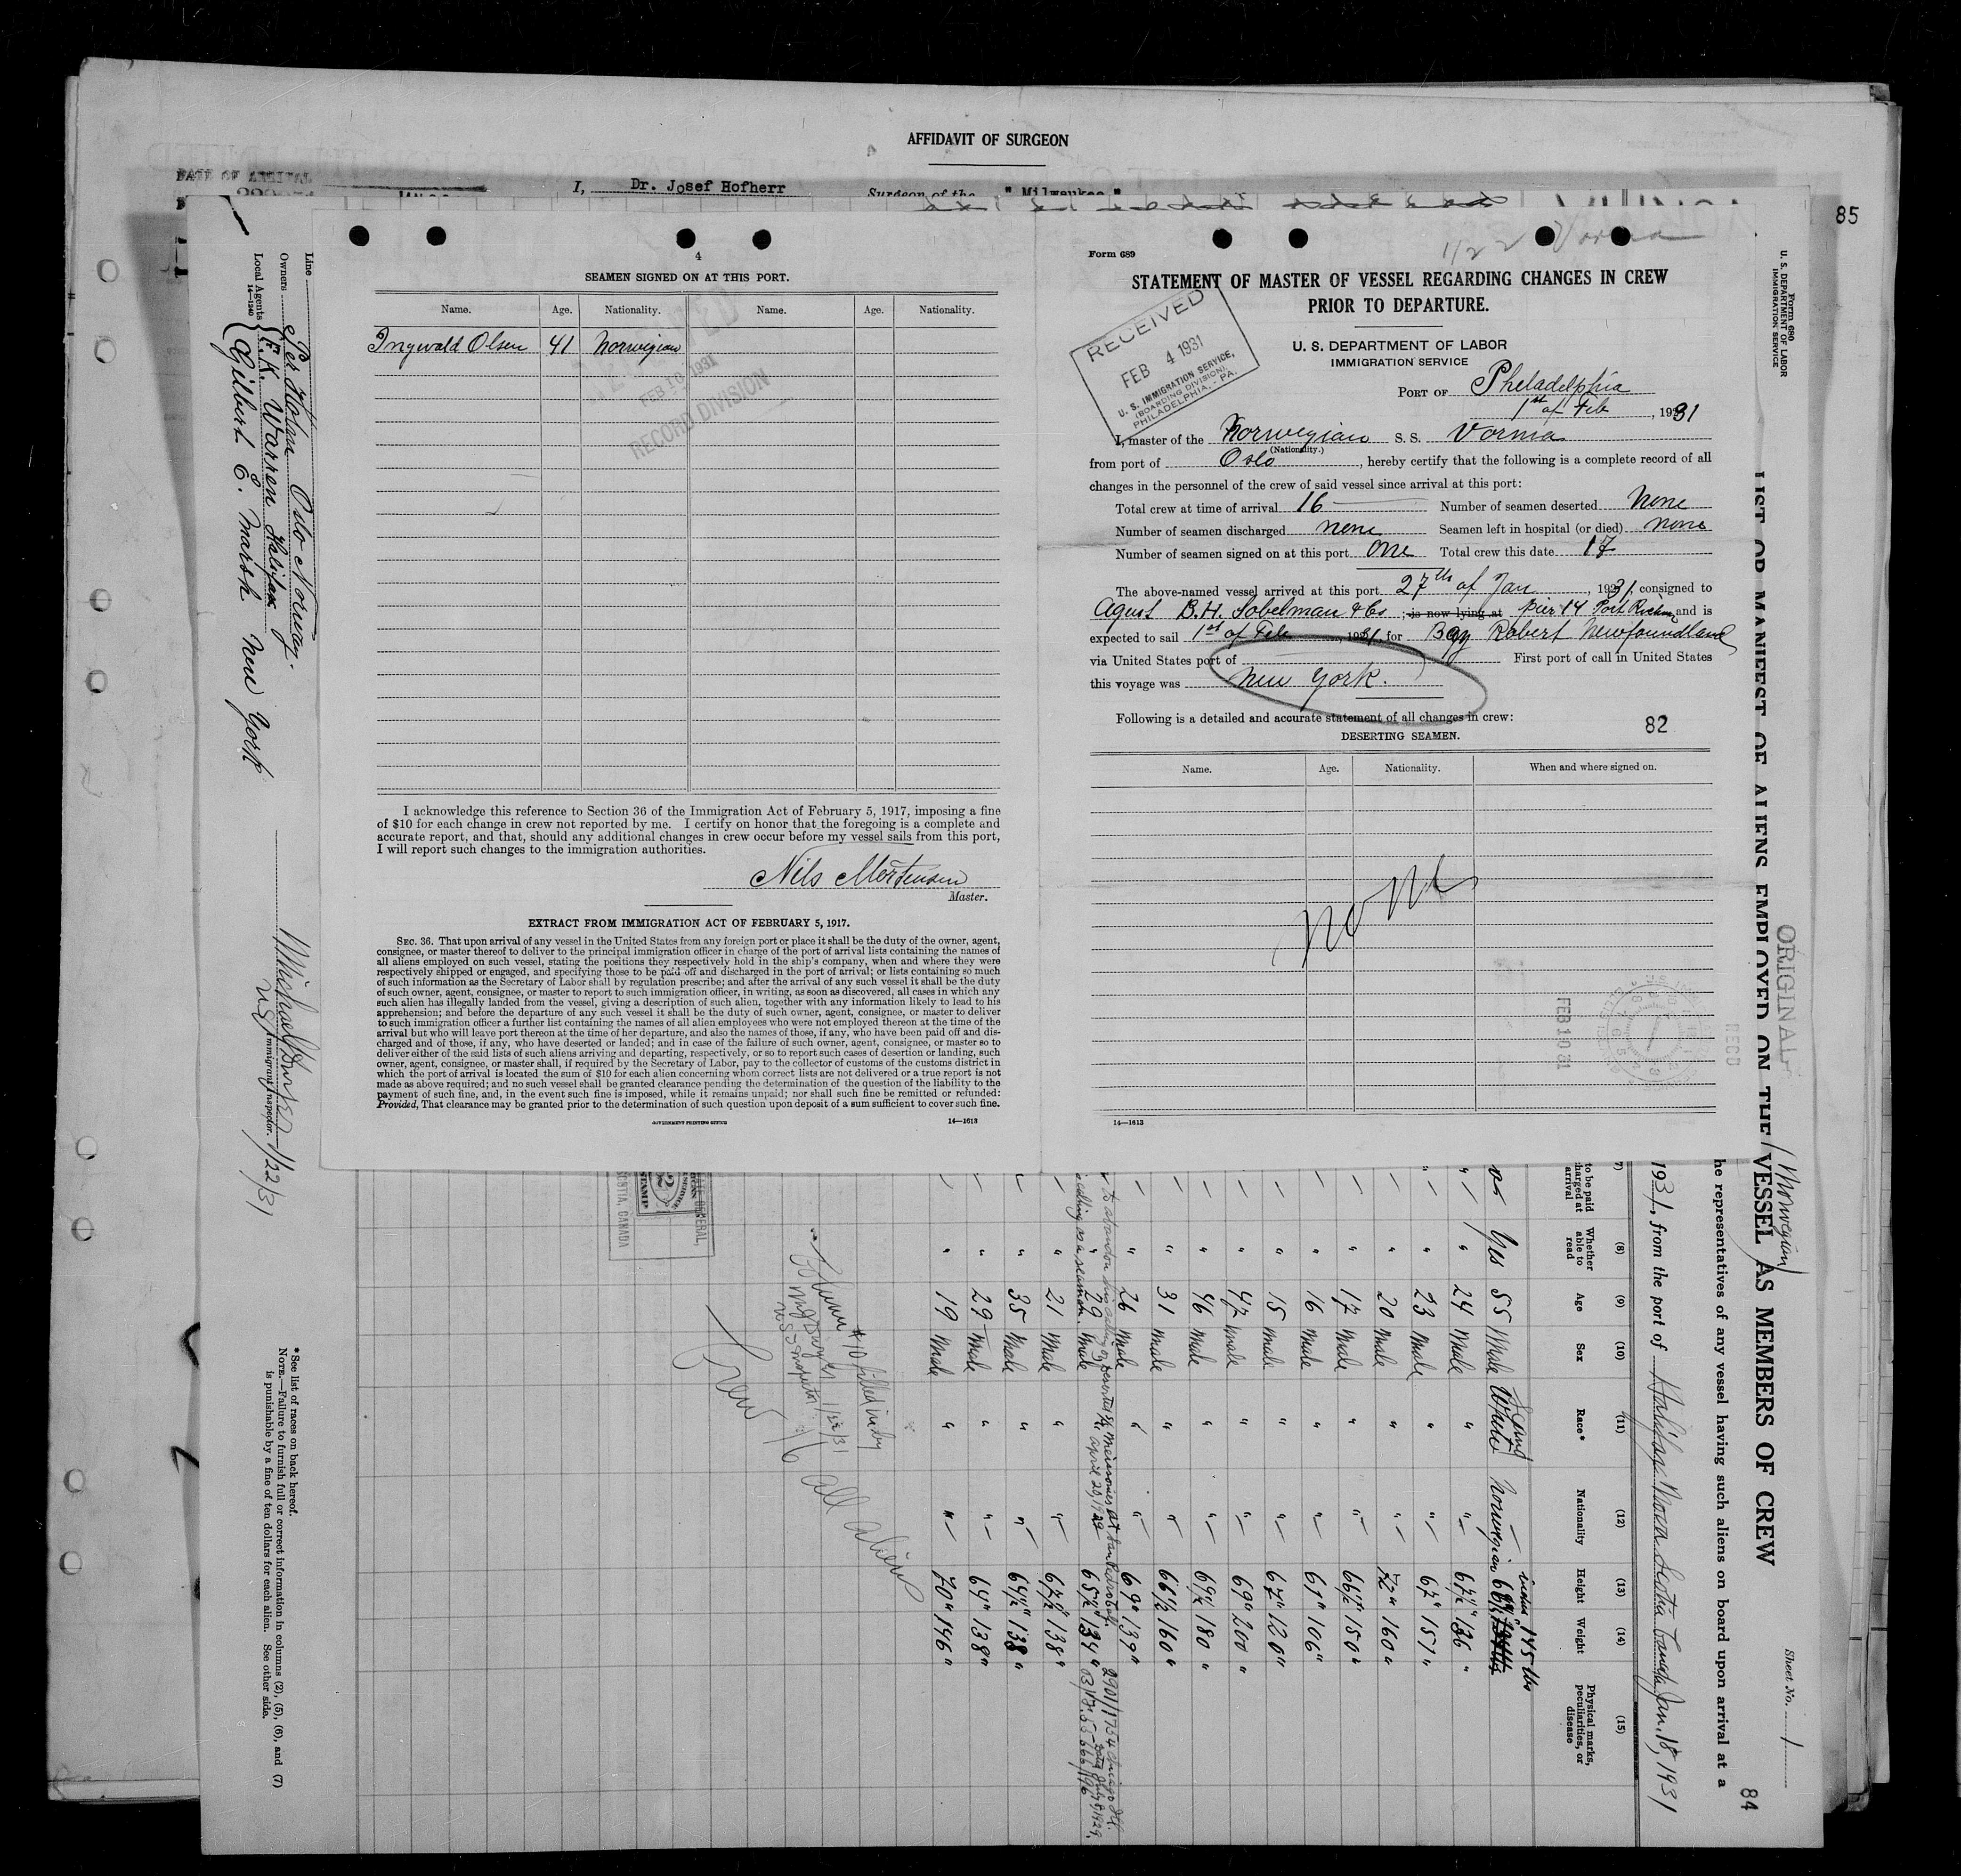 AFFIDAVIT OF SURGEON
DATE OF ARRIVAL
I, Dr. Josef Hofherr Surgeon of the " Milwaukee "
85
4
SEAMEN SIGNED ON AT THIS PORT.
Name. Age. Nationality. Name. Age. Nationality.
Ingwald Olsen 41 Norwegian
FEB 10 1931
RECORD DIVISION
I acknowledge this reference to Section 36 of the Immigration Act of February 5, 1917, imposing a fine
of $10 for each change in crew not reported by me. I certify on honor that the foregoing is a complete and
accurate report, and that, should any additional changes in crew occur before my vessel sails from this port,
I will report such changes to the immigration authorities.
Nils Mortensen
Master.
EXTRACT FROM IMMIGRATION ACT OF FEBRUARY 5, 1917.
SEC. 36. That upon arrival of any vessel in the United States from any foreign port or place it shall be the duty of the owner, agent,
consignee, or master thereof to deliver to the principal immigration officer in charge of the port of arrival lists containing the names of
all aliens employed on such vessel, stating the positions they respectively hold in the ship's company, when and where they were
respectively shipped or engaged, and specifying those to be paid off and discharged in the port of arrival; or lists containing so much
of such information as the Secretary of Labor shall by regulation prescribe; and after the arrival of any such vessel it shall be the duty
of such owner, agent, consignee, or master to report to such immigration officer, in writing, as soon as discovered, all cases in which any
such alien has illegally landed from the vessel, giving a description of such alien, together with any information likely to lead to his
apprehension; and before the departure of any such vessel it shall be the duty of such owner, agent, consignee, or master to deliver
to such immigration officer a further list containing the names of all alien employees who were not employed thereon at the time of the
arrival but who will leave port thereon at the time of her departure, and also the names of those, if any, who have been paid off and dis-
charged and of those, if any, who have deserted or landed; and in case of the failure of such owner, agent, consignee, or master so to
deliver either of the said lists of such aliens arriving and departing, respectively, or so to report such cases of desertion or landing, such
owner, agent, consignee, or master shall, if required by the Secretary of Labor, pay to the collector of customs of the customs district in
which the port of arrival is located the sum of $10 for each alien concerning whom correct lists are not delivered or a true report is not
made as above required; and no such vessel shall be granted clearance pending the determination of the question of the liability to the
payment of such fine, and, in the event such fine is imposed, while it remains unpaid; nor shall such fine be remitted or refunded:
Provided, That clearance may be granted prior to the determination of such question upon deposit of a sum sufficient to cover such fine.
GOVERNMENT PRINTING OFFICE 14—1613
1/22 Vorma
Form 689
STATEMENT OF MASTER OF VESSEL REGARDING CHANGES IN CREW
PRIOR TO DEPARTURE.
U. S. DEPARTMENT OF LABOR
IMMIGRATION SERVICE
RECEIVED
FEB 4 1931
U. S. IMMIGRATION SERVICE,
(BOARDING DIVISION),
PHILADELPHIA, - PA.
PORT OF Pheladelphia
1st of Feb , 1931
I, master of the Norwegian S. S. Vorma
(Nationality.)
from port of Oslo , hereby certify that the following is a complete record of all
changes in the personnel of the crew of said vessel since arrival at this port:
Total crew at time of arrival 16 Number of seamen deserted None
Number of seamen discharged none Seamen left in hospital (or died) none
Number of seamen signed on at this port One Total crew this date 17
The above-named vessel arrived at this port 27th of Jan , 1931, consigned to
Agent B.H. Sobelman & Co ; is now lying at Pier 14 Port Richm and is
expected to sail 1st of Feb , 1931, for Bay Robert Newfoundland
via United States port of First port of call in United States
this voyage was New York.
Following is a detailed and accurate statement of all changes in crew:
82
DESERTING SEAMEN.
Name. Age. Nationality. When and where signed on.
None
FEB 10 31
RECD
14—1613
Form 680
U. S. DEPARTMENT OF LABOR
IMMIGRATION SERVICE
ORIGINAL
Sheet No. 1
84
LIST OR MANIFEST OF ALIENS EMPLOYED ON THE VESSEL AS MEMBERS OF CREW
(Norwegian)
he representatives of any vessel having such aliens on board upon arrival at a
1931, from the port of Halifax Nova Scotia Canada Jan. 18, 1931
(8) (9) (10) (11) (12) (13) (14) (15)
to be paid
charged at
arrival
Whether able to read Age Sex Race* Nationality Height Weight Physical marks, peculiarities, or disease
Yes 55 Male Scand White Norwegian 145 lbs
" 24 Male " " 67½ " 136 "
" 23 Male " " 67 " 151 "
" 20 Male " " 72 " 160 "
" 17 Male " " 66½ " 150 "
" 16 Male " " 61 " 106 "
" 15 Male " " 67 " 120 "
" 47 Male " " 69 " 200 "
" 46 Male " " 69½ 180 "
" 31 Male " " 66½ 160 "
" 26 Male " " 69 " 139 "
" 29 Male 65½ " 134 "
" 21 Male " " 67½ " 138 "
" 35 Male " " 64½ " 138 "
" 29 Male " " 64 " 138 "
" 19 Male " " 70 " 146 "
#10 filled in by
1/22/31
U S Inspector
Crew 16 all aliens
SCOTIA, CANADA
Line
Owners Per Holm Oslo Norway.
Local Agents { F.K. Warren Halifax
Gilbert E. Marsh New York
14—1240
Immigrant Inspector. 1/22/31
* See list of races on back hereof.
NOTE.—Failure to furnish full or correct information in columns (2), (5), (6), and (7)
is punishable by a fine of ten dollars for each alien. See other side.